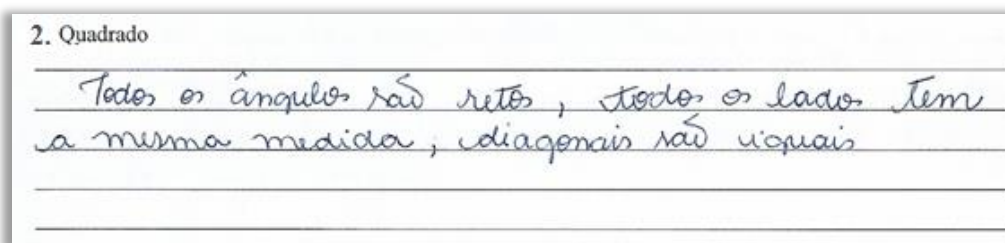 2. Quadrado
Todos os ângulos são retos, todos os lados tem
a mesma medida; diagonais são iguais